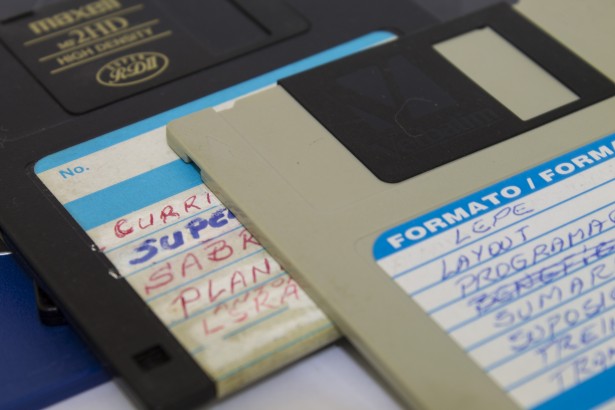 maxell
MF 2HD
HIGH DENSITY
SUPER
RDII
No.
CURRI
SUPE
SABR
PLAN
FORMATO / FORMA
LEPE
LAYOUT
PROGRAMA
SUMAR
SUPOSI
TREIN